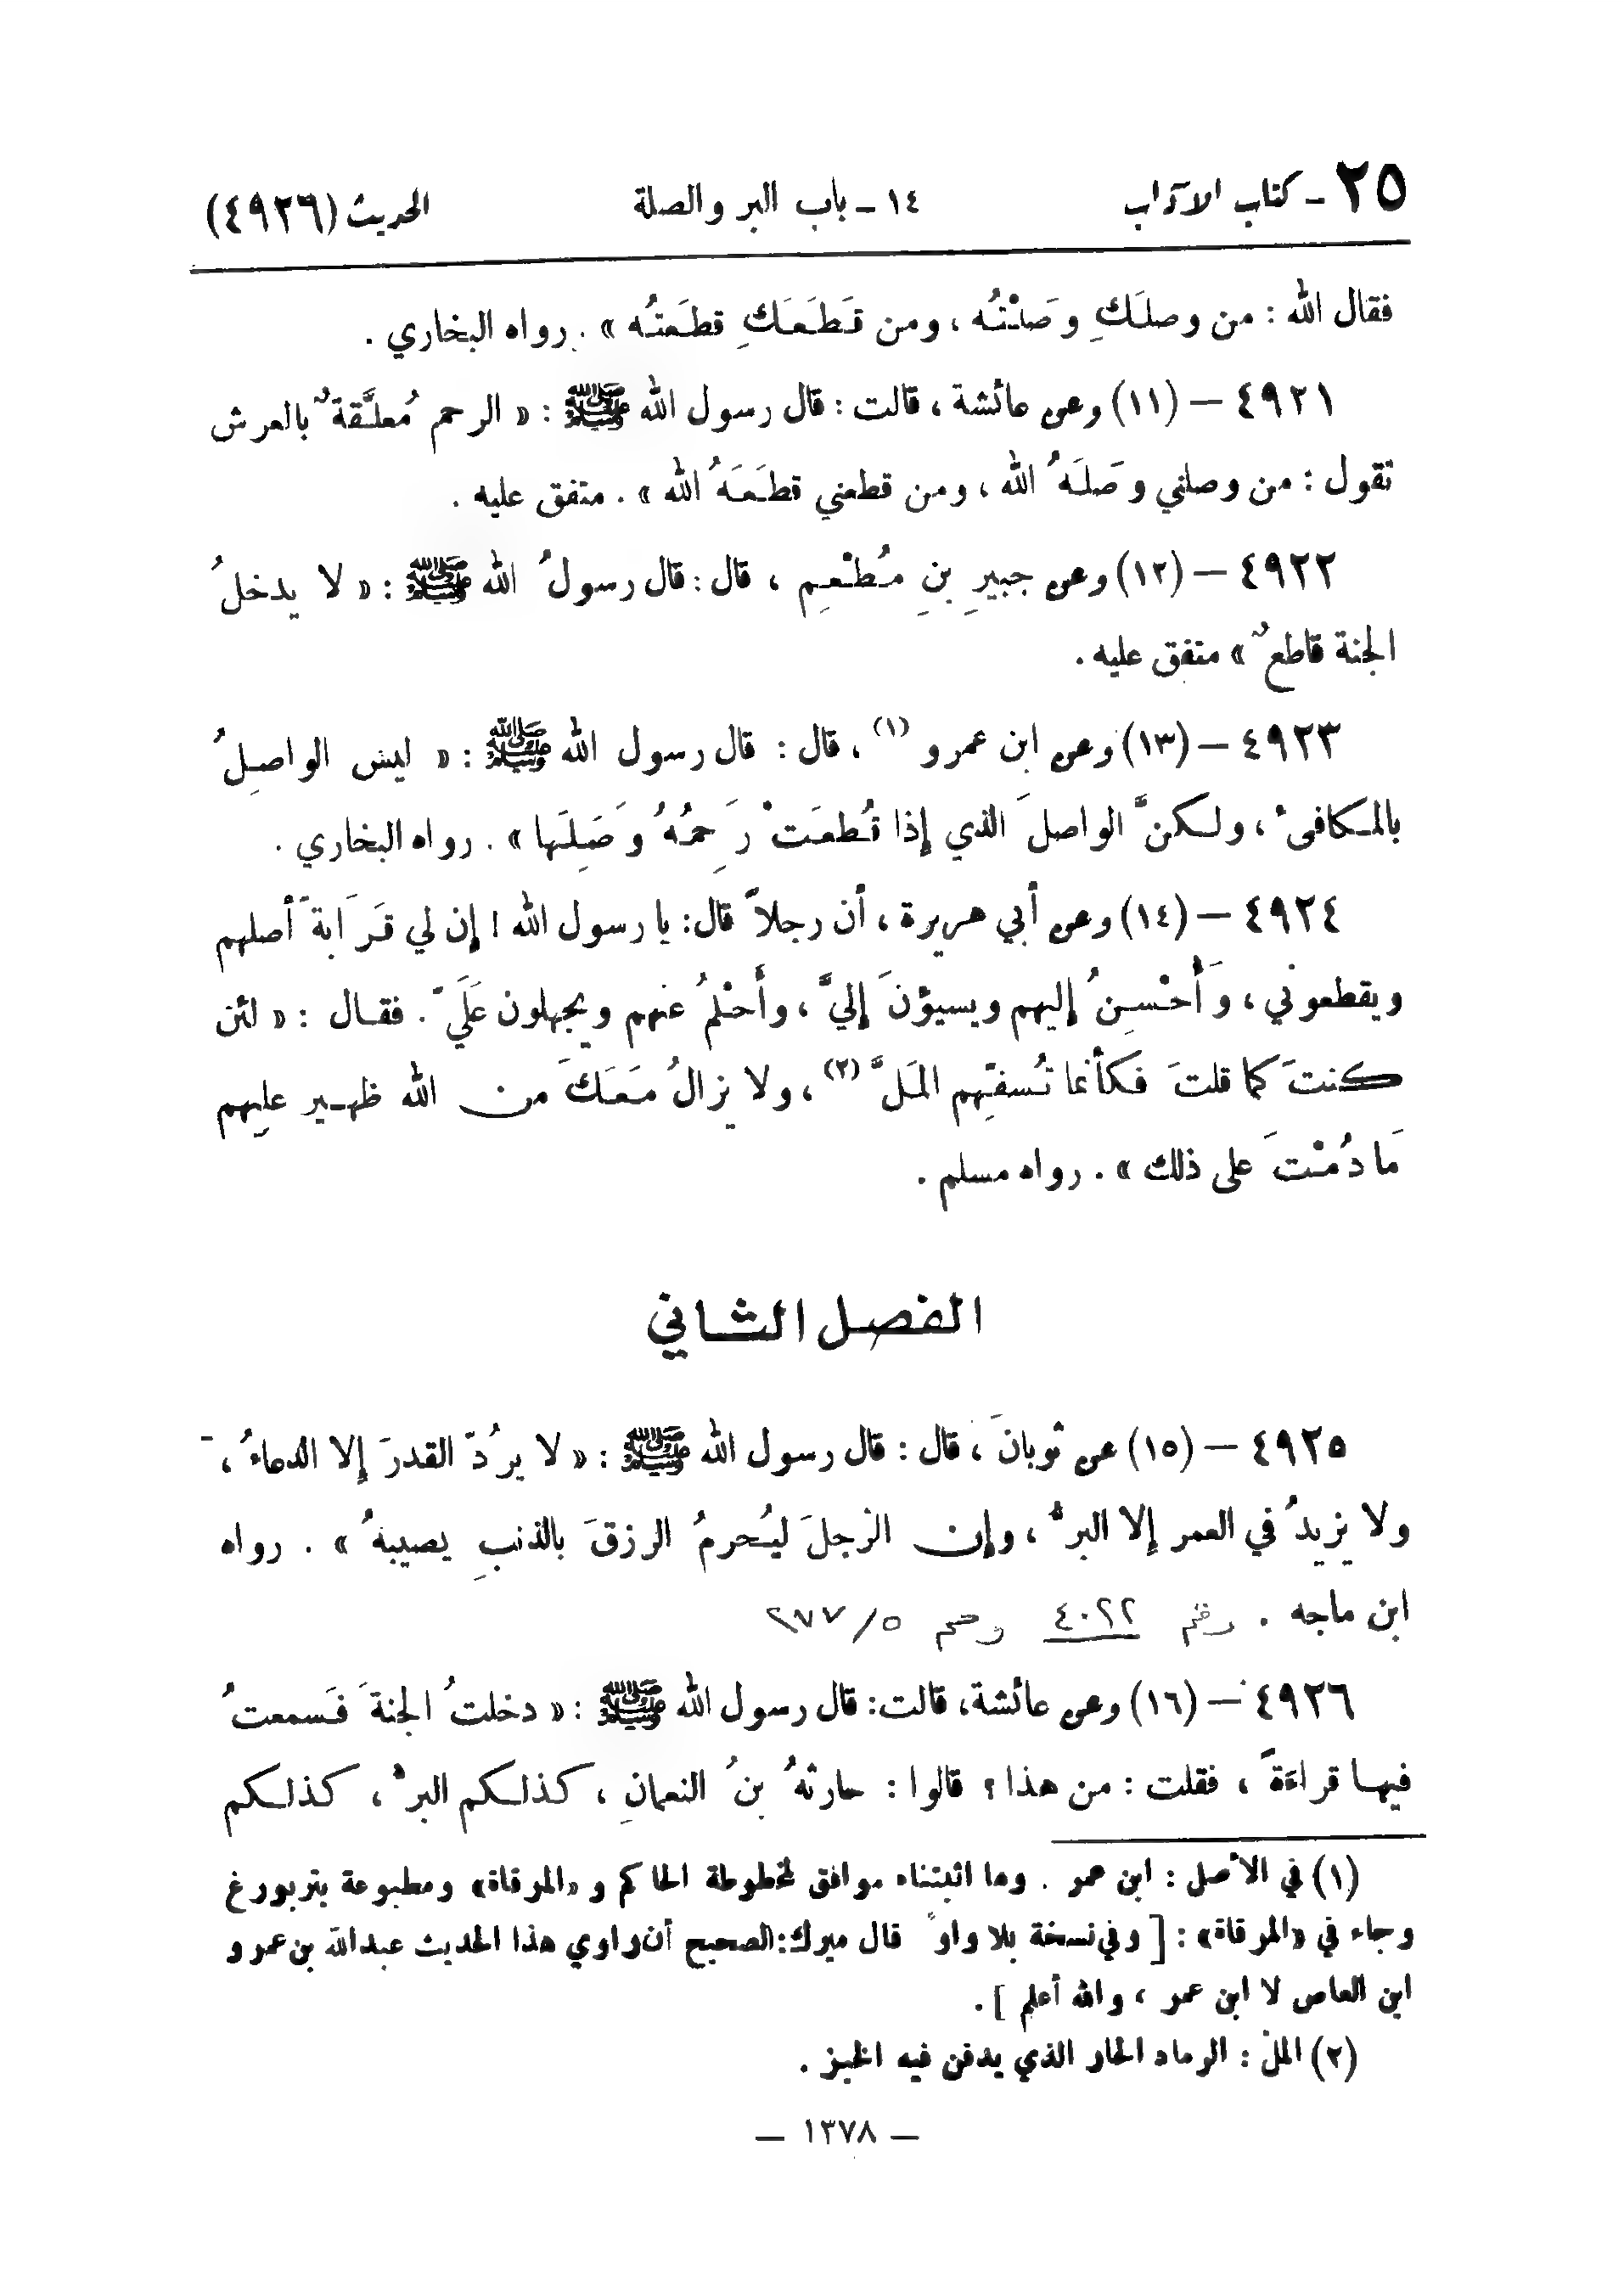 ٢٥ - كتاب الآداب ١٤ - باب البر والصلة الحديث (٤٩٢٦)
فقال الله : من وصلَكِ وَصلْتُه ، ومن قَطَعَكِ قطَعتُه » . رواه البخاري .
٤٩٢١ – (١١) وعن عائشة ، قالت : قال رسول الله ﷺ : « الرحم مُعلَّقةٌ بالعرش
تقول : من وصلني وَصَلَهُ الله ، ومن قطعني قطَعَهُ الله » . متفق عليه .
٤٩٢٢ – (١٢) وعن جبيرِ بنِ مُطْعِم ، قال : قال رسولُ الله ﷺ : « لا يدخلُ
الجنة قاطعٌ » متفق عليه .
٤٩٢٣ – (١٣) وعن ابن عمرو (١) ، قال : قال رسول الله ﷺ : « ليس الواصِلُ
بالمكافىءِ ، ولكنَّ الواصلَ الذي إذا قُطعَتْ رَحِمُهُ وَصَلَها » . رواه البخاري .
٤٩٢٤ – (١٤) وعن أبي هريرة ، أن رجلاً قال : يا رسول الله ! إن لي قَرَابةً أصلهم
ويقطعوني ، وَأُحْسِنُ إليهم ويسيؤنَ إليَّ ، وأَحْلمُ عنهم ويجهلون عَلَيَّ . فقال : « لئن
كنتَ كما قلتَ فكأنما تُسفِّهم المَلَّ (٢) ، ولا يزالُ مَعَكَ من الله ظهير عليهم
مَا دُمْتَ على ذلك » . رواه مسلم .
الفصل الثاني
٤٩٢٥ – (١٥) عن ثوبانَ ، قال : قال رسول الله ﷺ : « لا يرُدّ القدرَ إلا الدعاءُ ،
ولا يزيدُ في العمر إلا البرُّ ، وإن الرجلَ ليُحرمُ الرزقَ بالذنبِ يصيبهُ » . رواه
ابن ماجه . رقم ٤٠٢٢ وحم ٥/٢٧٧
٤٩٢٦ – (١٦) وعن عائشة ، قالت : قال رسول الله ﷺ : « دخلتُ الجنةَ فَسمعتُ
فيها قراءةً ، فقلت : من هذا ؟ قالوا : حارثهُ بنُ النعمانِ ، كذلكم البرُّ ، كذلكم
(١) في الأصل : ابن عمر . وما اثبتناه موافق لمخطوطة الحاكم و «المرقاة» ومطبوعة بتربورغ
وجاء في «المرقاة» : [ وفي نسخة بلا واو قال ميرك : الصحيح أن راوي هذا الحديث عبدالله بن عمرو
ابن العاص لا ابن عمر ، والله أعلم ] .
(٢) الملّ : الرماد الحار الذي يدفن فيه الخبز .
– ١٣٧٨ –